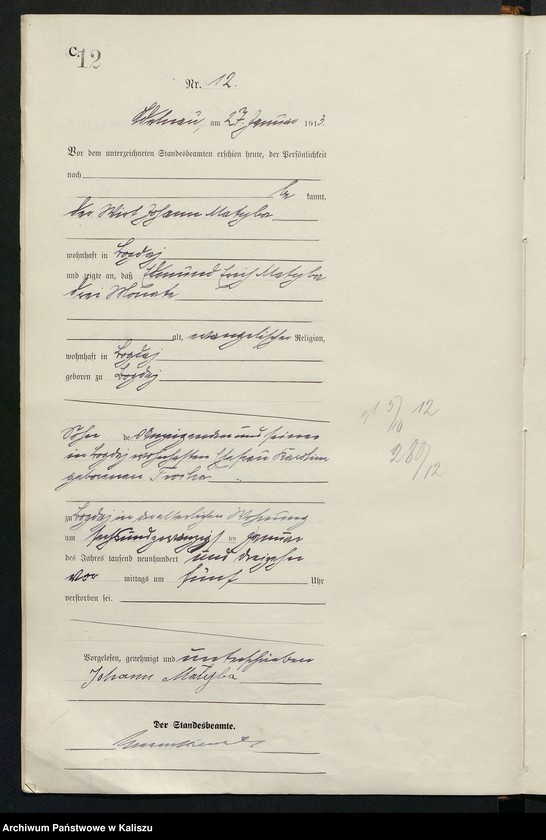 C.
12
Nr. 12.
am 27 Januar 1913.
Vor dem unterzeichneten Standesbeamten erschien heute, der Persönlichkeit
nach
be kannt,
der Wirt Johann Matyba
wohnhaft in Bogdaj
und zeigte an, daß Edmund Erich Matyba
drei Monate
alt, evangelischer Religion,
wohnhaft in Bogdaj
geboren zu Bogdaj
Sohn des Anzeigenden und seiner
in Bogdaj wohnhaften Ehefrau Karoline
geborenen
zu Bogdaj in der elterlichen Wohnung
am sechsundzwanzigsten Januar
des Jahres tausend neunhundert und dreizehn
vor mittags um fünf Uhr
verstorben sei.
Vorgelesen, genehmigt und unterschrieben
Johann Matyba
Der Standesbeamte.
5/10 12
280/12
Archiwum Państwowe w Kaliszu